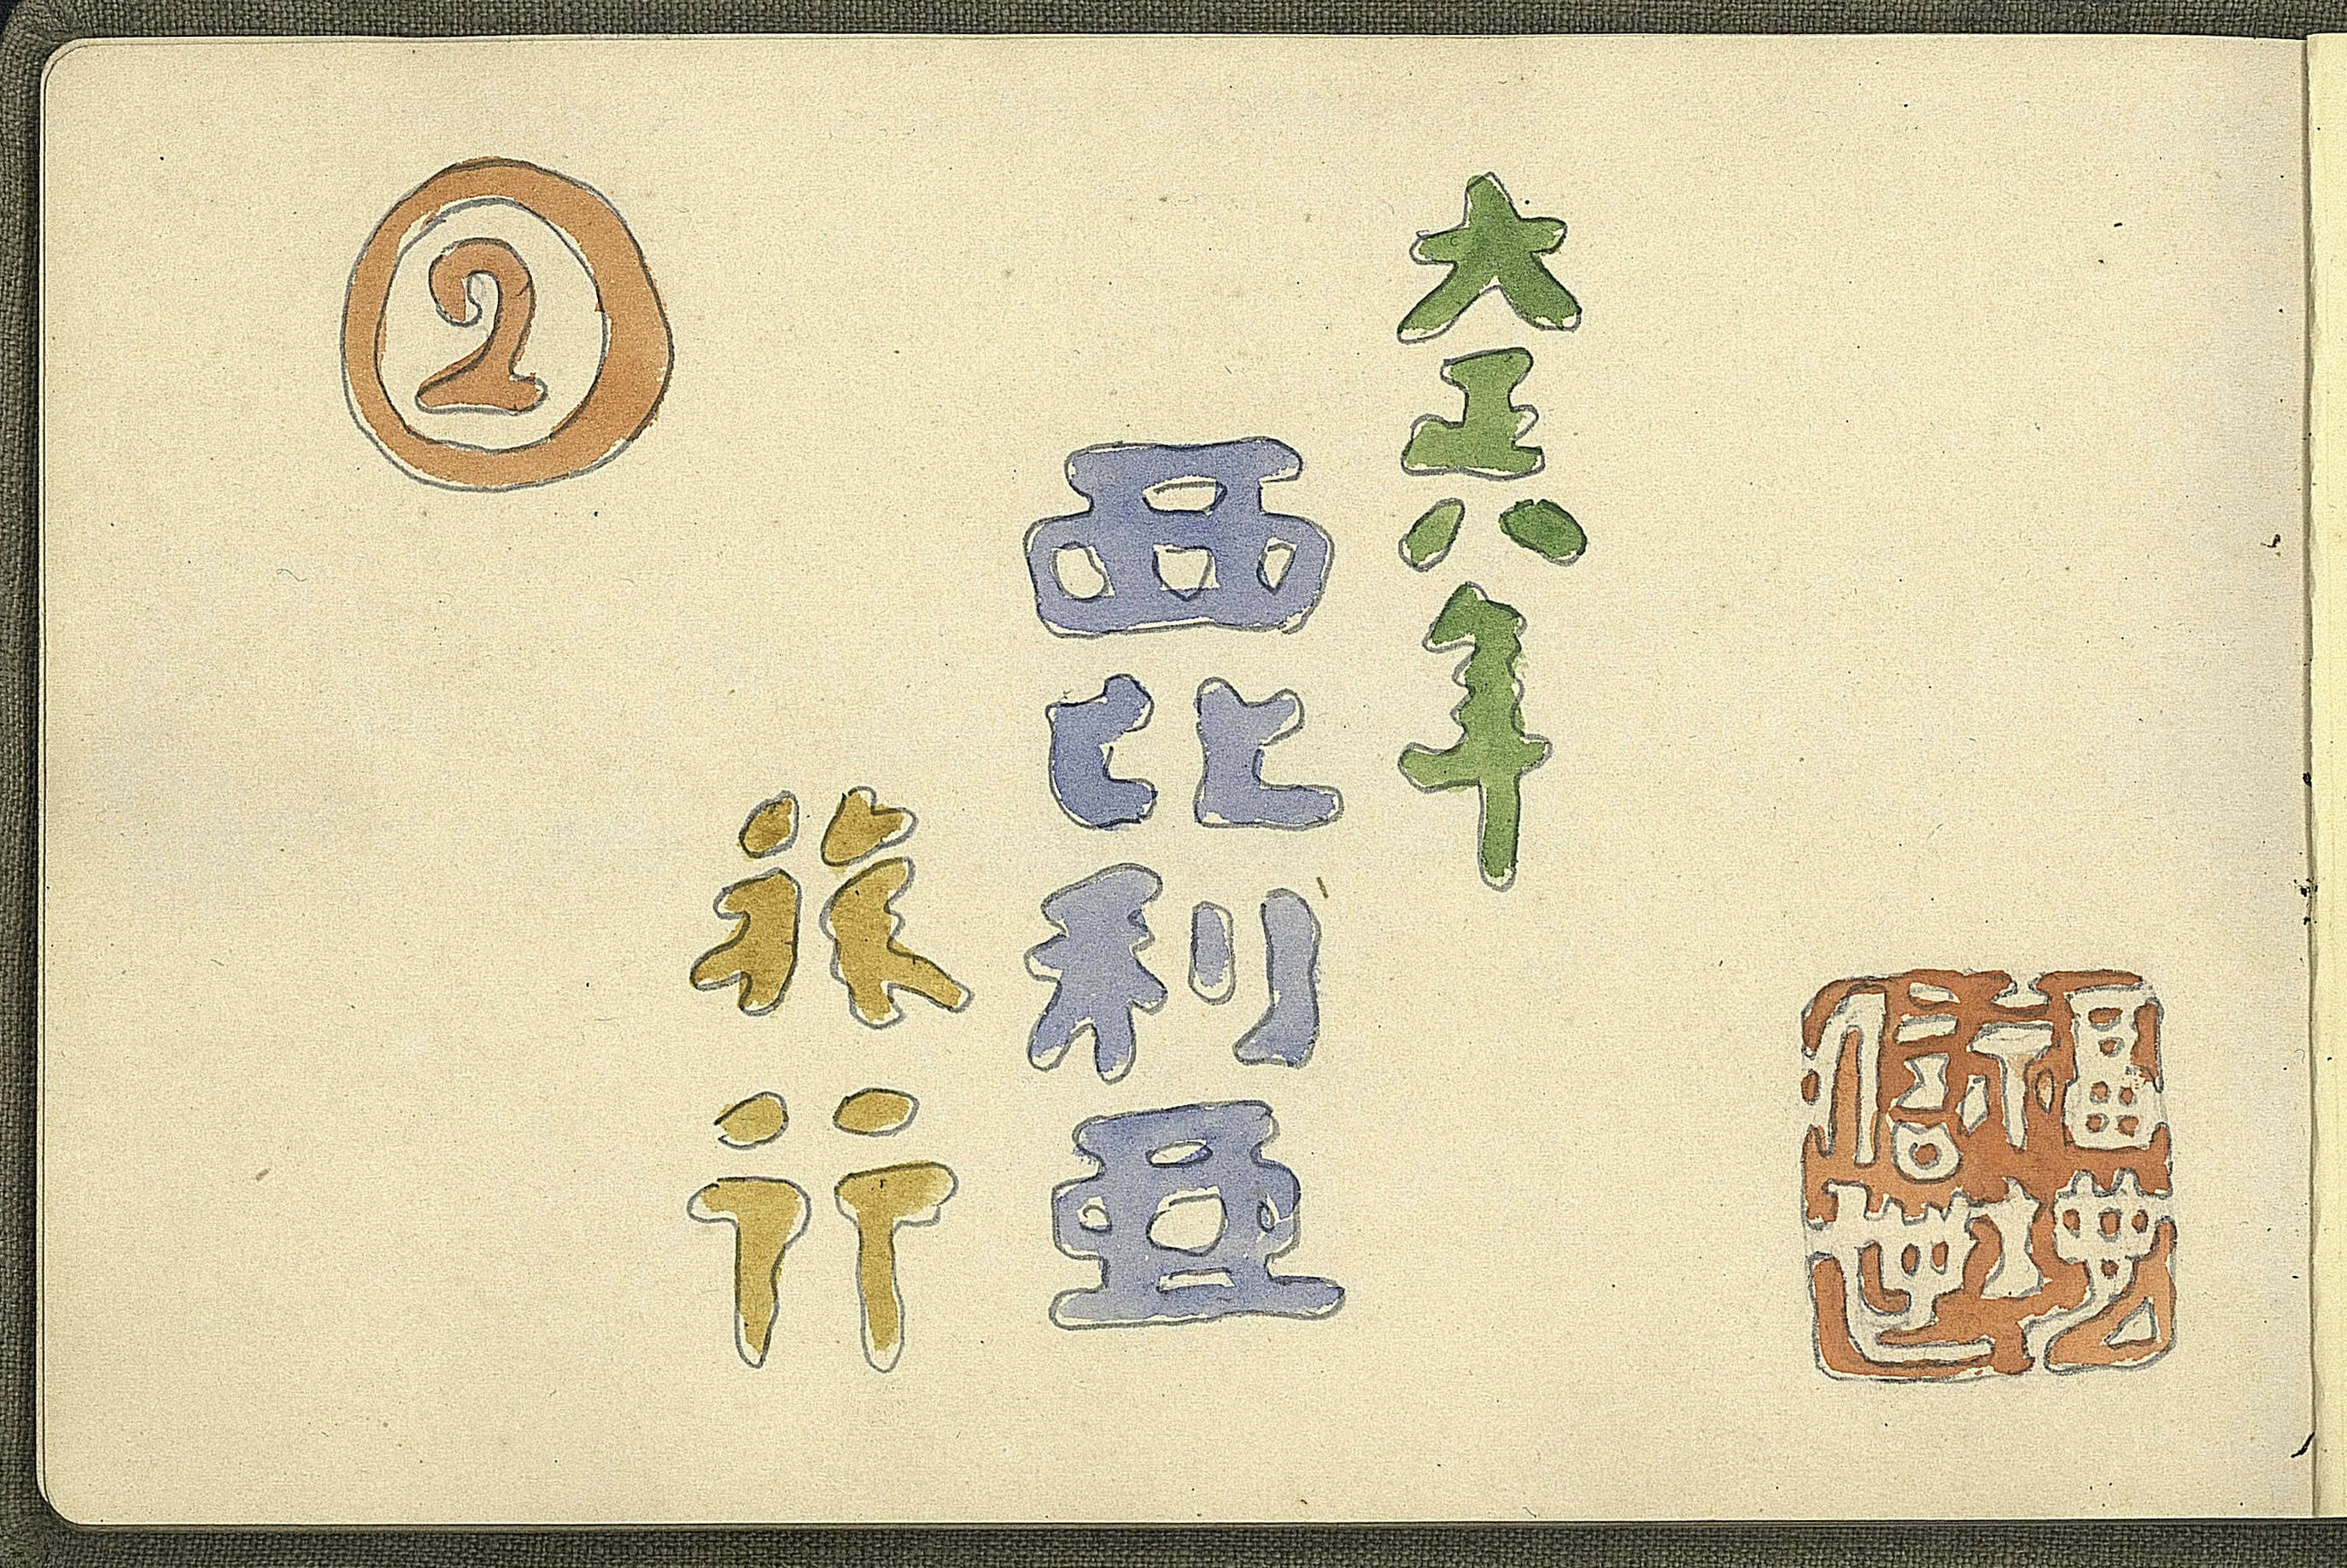 大正八年
西比利亜
旅行
2